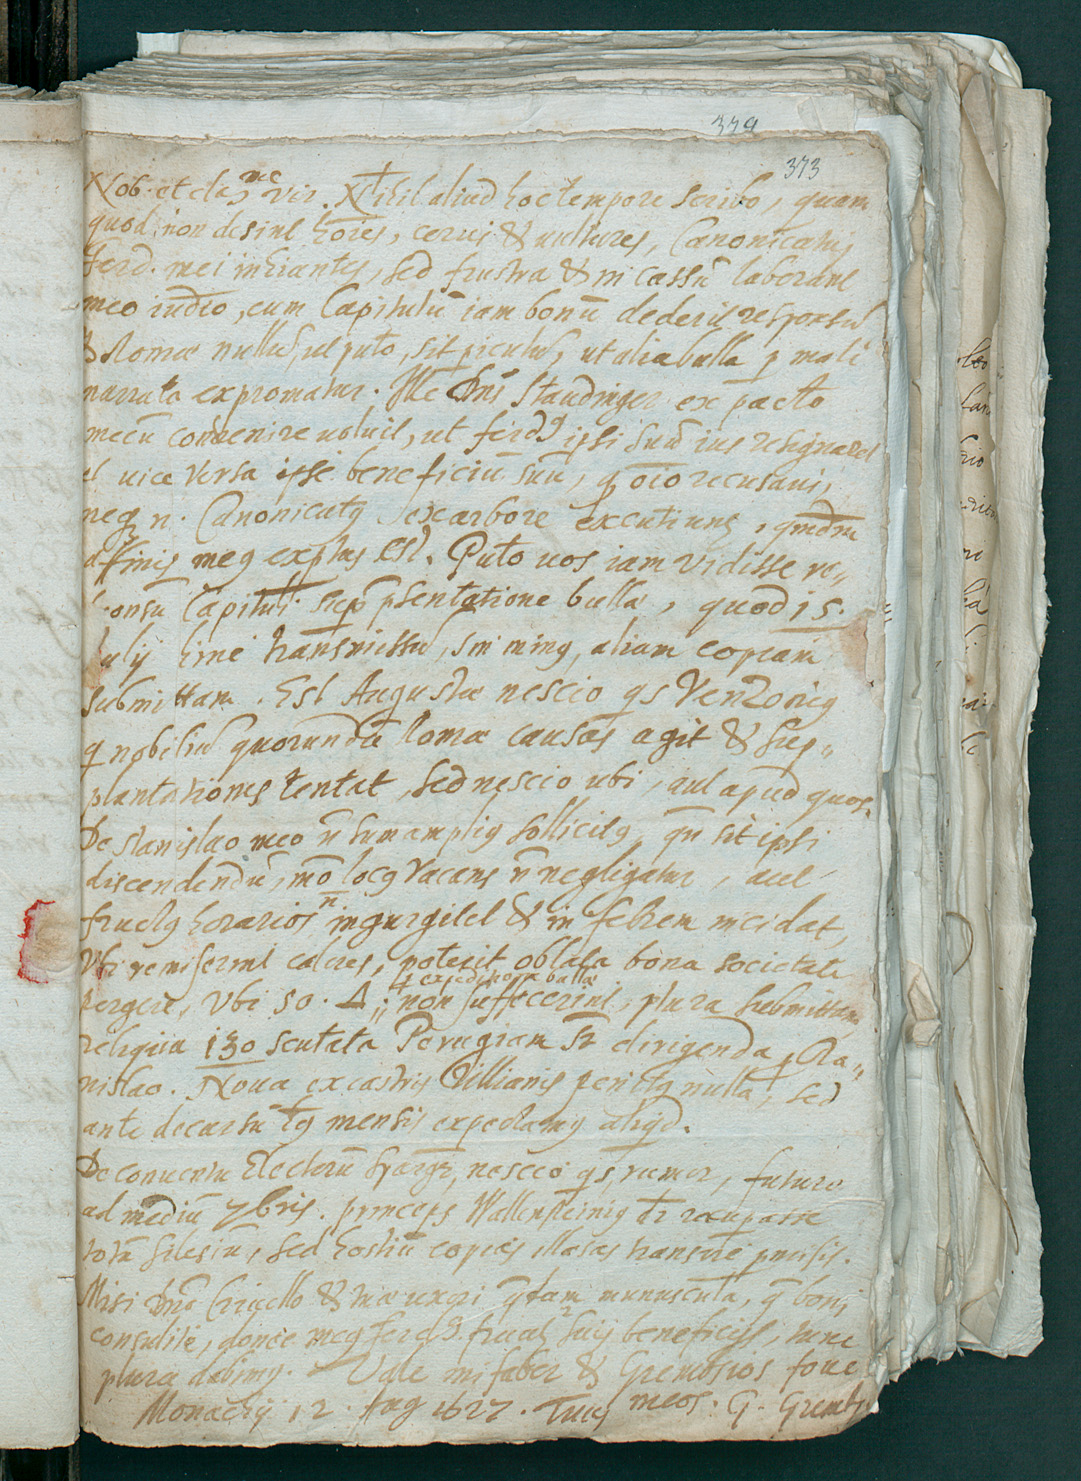 379
373
Nob. et clar.me Vir. Nihil aliud hoc tempore scribo, quam
quod non desint hōies, corui & uultures, Canonicatui
Ferd. mei inhiantes, sed frustra & in cassū laborant
meo iudicio, cum Capitulū iam bonū dederit responsū
Romæ nullū, ut puto, sit piculum, ut alia bulla p mali
narrata expromatur. Ille Dn̄s Staudinger ex pacto
mecū conuenire uoluit, ut ferd9 ipsi suū ius resignaret
et uice versa ipse beneficiū suū, q oīo recusaui,
neq; n. Canonicatq ex arbore excutiunt,
affinis meq expertus est. Puto uos iam vidisse re„
sponsū Capituli sup p̄sentatione bullæ, quod 15.
Julij transmissū, sin minq, aliam copiam
submittam. Est Augustæ nescio qs
q nobiliū quorundā Romæ causas agit & sup„
plantationes tentat, sed nescio ubi, aut apud quos.
De Stanislao meo n̄ sum ampliq sollicitq, qn̄ sit ipsi
discendendū, mō locq vacans n̄ negligatur, uel
fructq horarios n ingurgitet & in febrem incidat,
Vbi remiserint calores, poterit oblata bona societate
p expeditione bullæ
pergere, Vbi 50. non suffecerint, plura submittam
reliqua 130 scutata Perugiam st dirigenda p Sta„
nislao. Noua ex castris Tillianis penitq nulla, sed
ante decursū hq mensis expectamq aliqd.
De conuentu Electorū spargit, nescio qs, rumor, futuro
ad mediū 7bris. princeps Wallensteiniq dr̄ recuperasse
totā Silesiā, sed hostiū copias illæsas transire p̄misit.
Misi Dn̄o Criuello & uxori munuscula, q boni
consulite, donec meq ferd9. fruat suis beneficijs, tunc
plura dabimq. Vale mi faber & Grembsios foue
Monachij 12. Aug 1627. Tuus meos. G. Grembs